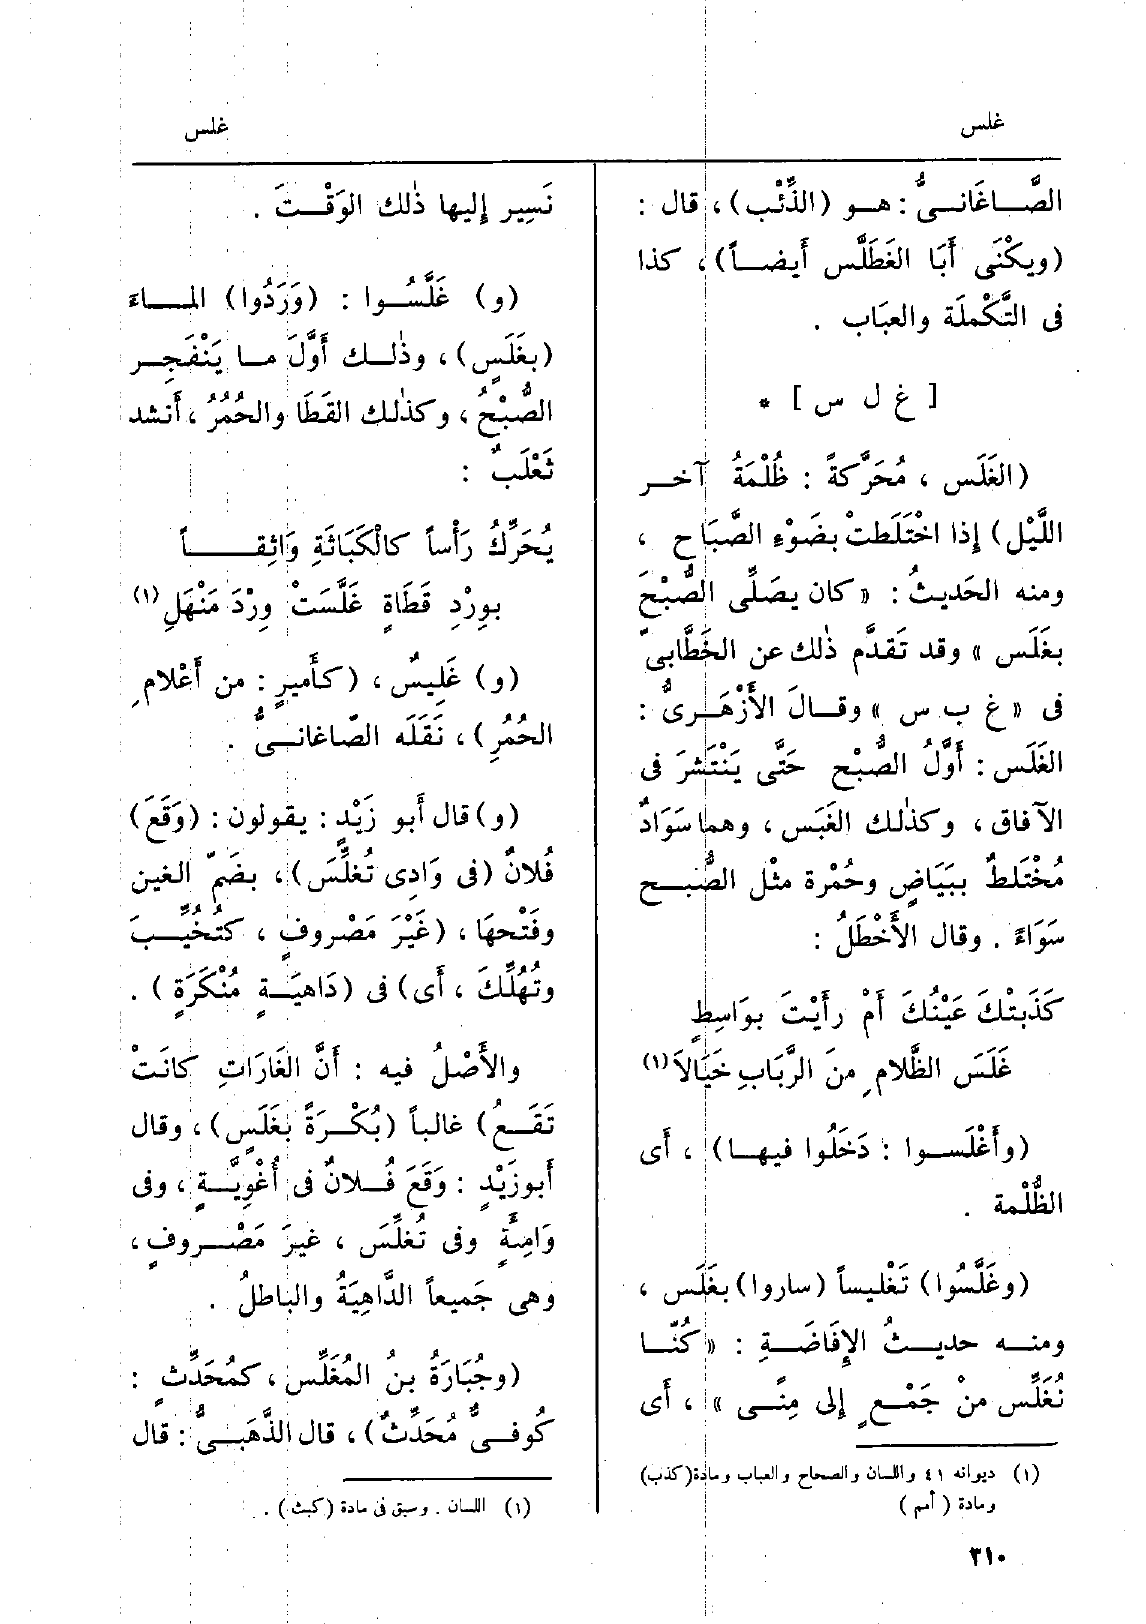 غلس
غلس
الصَّاغَانىُّ : هو (الذِّئْب) ، قال :
(ويكْنَى أَبَا الغَطَلَّس أَيضاً) ، كذا
فى التَّكْملَة والعبَاب .
[ غ ل س ] *
(الغَلَس ، مُحَرَّكةً : ظُلْمَةُ آخر
اللَّيْل) إِذا اخْتَلَطتْ بضَوْءِ الصَّبَاح ،
ومنه الحَديثُ : « كان يصَلِّى الصُّبْحَ
بغَلَس » وقد تَقدَّم ذٰلك عن الخَطَّابىّ
فى « غ ب س » وقالَ الأَزْهَرىُّ :
الغَلَس : أَوَّلُ الصُّبْح حَتَّى يَنْتَشرَ فى
الآفاق ، وكذٰلك الغَبَس ، وهما سَوَادٌ
مُخْتَلطٌ ببَيَاضٍ وحُمْرة مثْل الصُّبح
سَوَاءً . وقال الأَخْطَلُ :
كَذَبتْكَ عَيْنُكَ أَمْ رأَيْتَ بوَاسِطٍ
غَلَسَ الظَّلامِ منَ الرَّبَابِ خَيَالاَ (١)
(وأَغْلَسوا : دَخَلُوا فيها) ، أَى
الظُّلْمة .
(وغَلَّسُوا) تَغْليساً (ساروا) بغَلَس ،
ومنه حديثُ الإِفَاضَةِ : « كُنَّا
نُغَلِّس منْ جَمْعٍ إِلى مِنًى » ، أَى
(١) ديوانه ٤١ واللسان والصحاح والعباب ومادة (كذب)
ومادة ( أمم )
نَسِير إِليها ذٰلك الوَقْتَ .
(و) غَلَّسُوا : (وَرَدُوا) الماءَ
(بغَلَسٍ) ، وذٰلك أَوَّلَ ما يَنْفَجِر
الصُّبْحُ ، وكذٰلك القَطَا والحُمُرُ ، أَنشد
ثَعْلَبٌ :
يُحَرِّكُ رَأْساً كالْكَبَاثَةِ وَاثِقاً
بوِرْدِ قَطَاةٍ غَلَّسَتْ وِرْدَ مَنْهَلِ (١)
(و) غَلِيسٌ ، (كأَميرٍ : من أَعْلامِ
الحُمُرِ) ، نَقَلَه الصّاغانىُّ .
(و) قال أَبو زَيْدٍ : يقولون : (وَقَعَ)
فُلانٌ (فى وَادِى تُغلِّسَ) ، بضَمّ الغين
وفَتْحهَا ، (غَيْرَ مَصْروفٍ ، كتُخُيِّبَ
وتُهُلِّكَ ، أَى) فى (دَاهيَةٍ مُنْكَرَةٍ ) .
والأَصْلُ فيه : أَنَّ الغَارَاتِ كانَتْ
تَقَعُ) غالباً (بُكْرَةً بغَلَسٍ) ، وقال
أَبوزَيْدٍ : وَقَعَ فُلانٌ فى أُغْوِيَّةٍ ، وفى
وَامِئَةٍ وفى تُغلِّسَ ، غيرَ مَصْروفٍ ،
وهى جَميعاً الدَّاهِيَةُ والباطلُ .
(وجُبَارَةُ بنُ المُغَلِّس ، كمُحَدِّثٍ :
كُوفىٌّ مُحَدِّثٌ) ، قال الذَّهَبىُّ : قال
(١) اللسان . وسبق فى مادة (كبث) .
٣١٠